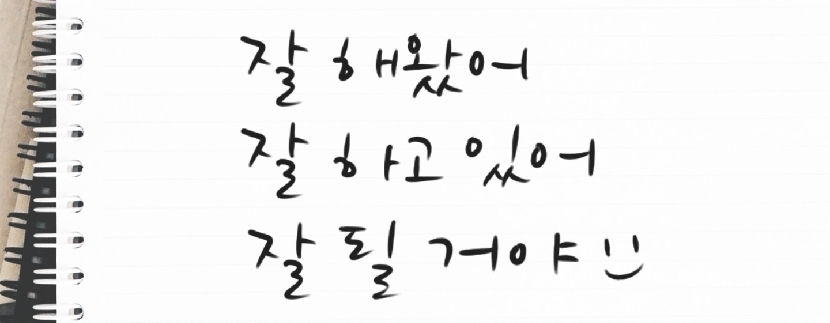 잘 해왔어
잘 하고 있어
잘 될 거야 :)